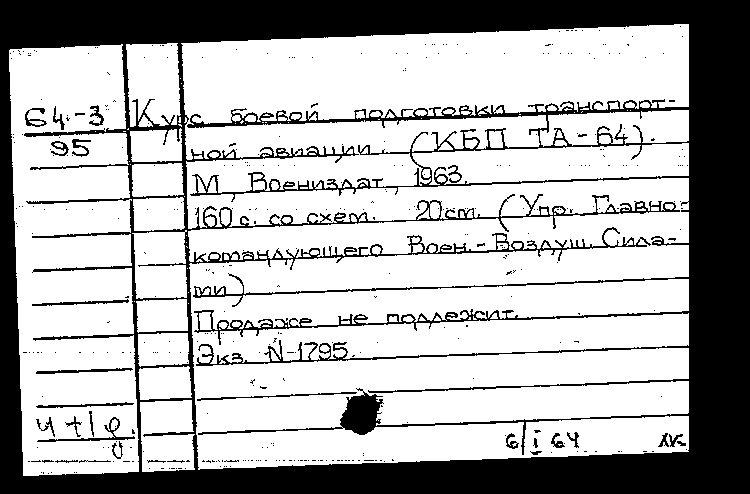 64.-3
95
Курс боевой подготовки транспорт-
ной авиации. (КБП ТА-64).
М., Воениздат, 1963.
160 с. со схем. 20 см. (Упр. Главно-
командующего Воен.-Воздуш. Сила-
ми)
Продаже не подлежит.
Экз. N-1795
6/I 64